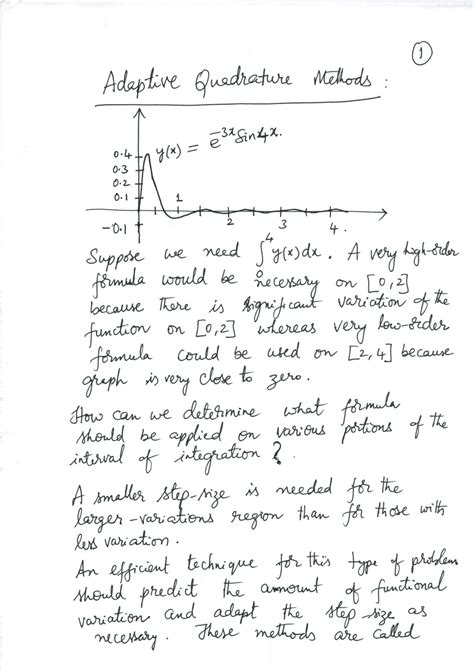 1
Adaptive Quadrature Methods :
y(x) = e^{-3x} Sin4x.
0.4
0.3
0.2
0.1
-0.1
1
2
3
4
Suppose we need ∫₀⁴ y(x)dx. A very high-order
formula would be necessary on [0,2]
because there is significant variation of the
function on [0,2] whereas very low-order
formula could be used on [2,4] because
graph is very close to zero.
How can we determine what formula
should be applied on various portions of the
interval of integration ?
A smaller step-size is needed for the
larger-variations region than for those with
less variation.
An efficient technique for this type of problem
should predict the amount of functional
variation and adapt the step-size as
necessary. These methods are called